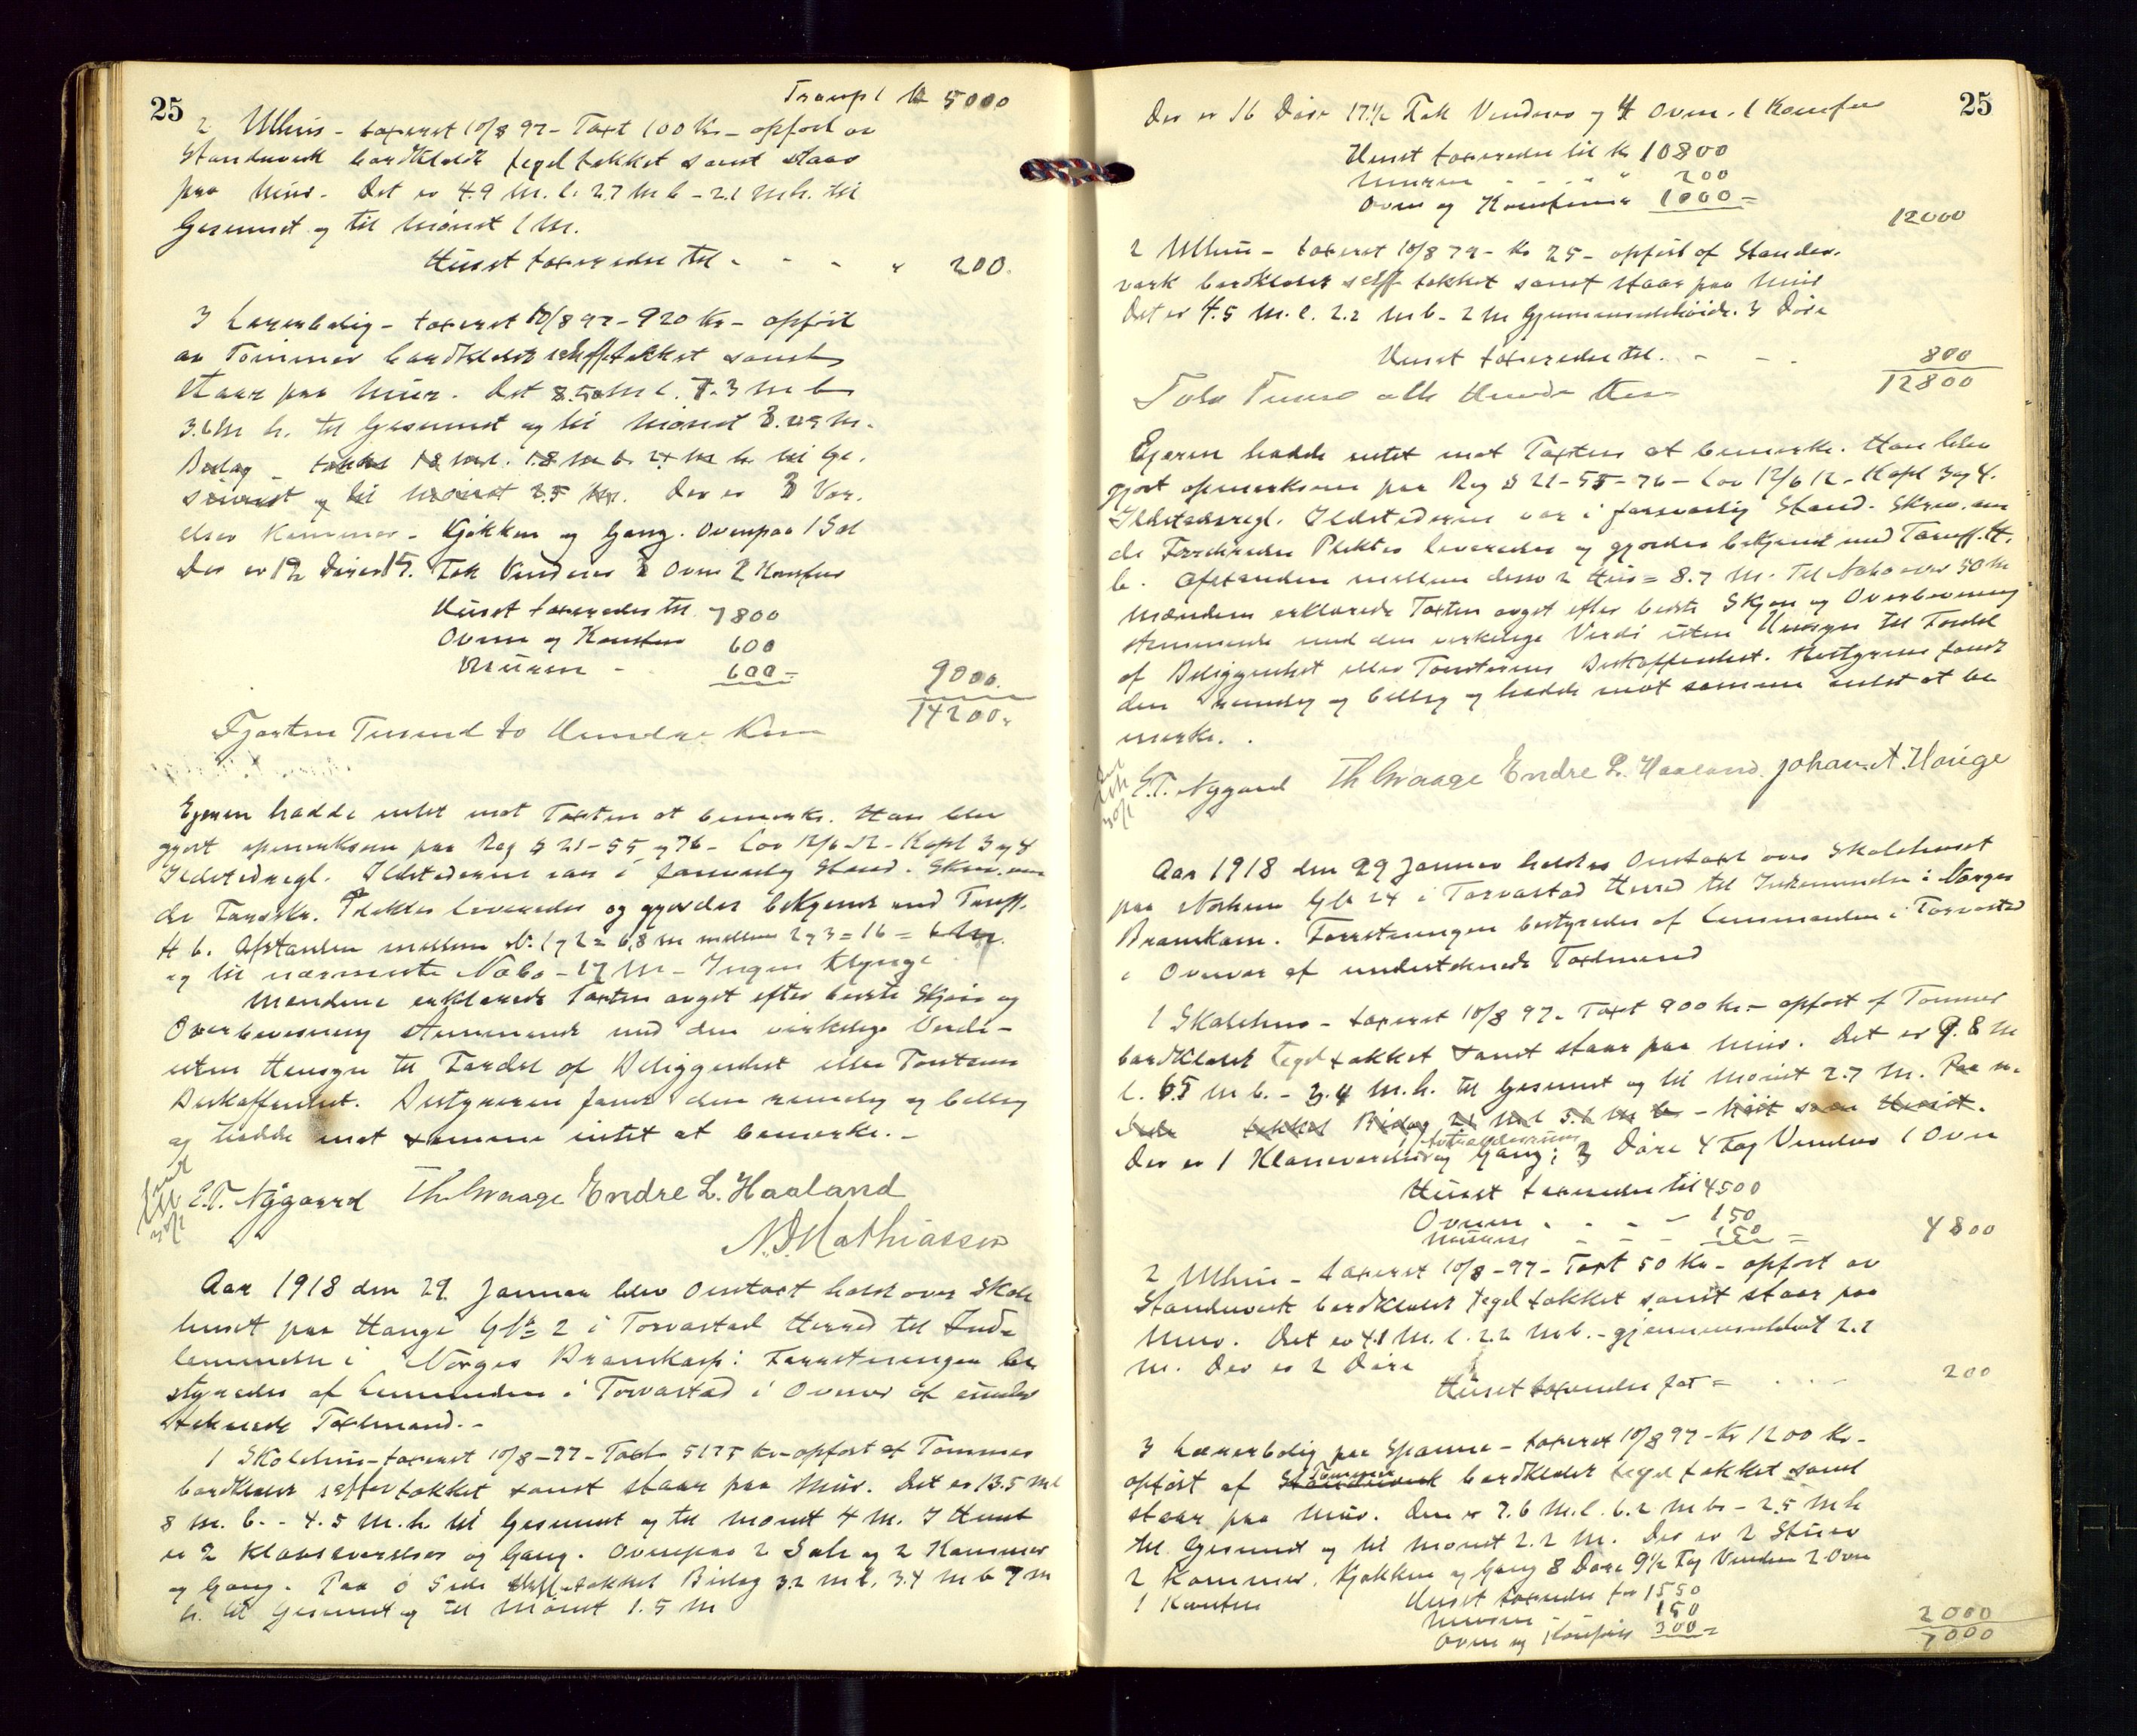 25
Transp 1 Kr 5000
2 Uthus - taxeret 10/8 97 - Taxt 100 Kr - opført av
Standverk bordklædt tegltækket samt staar
paa Mur. Det er 4.9 M. l. 2.7 M b - 2.1 M h. til
Gesimset og til Mønet 1 M.
Huset taxeredes til - - - " 200.
3 Lærerbolig - taxeret 10/8 97 - 920 Kr - opført
av Tømmer bordklædt skiffertækket samt
staar paa Mur. Det 8.50 M l. 7.3 M b
3.6 M h. til Gesimset og til Mønet 3.
Der er 3 Vær-
elser Kammer - Kjøkken og Gang. Ovenpaa 1 Sal
Der er 12 Dører 15. Fak Vinduer 3 Ovne 2 Komfur
Huset taxeredes til 7800
Ovne og Komfur 600
Muren - 600 =
9000.
14200.
Fjorten Tusind to Hundre Kr
Ejeren hadde intet mot Taxten at bemerke. Han blev
gjort opmerksom paa Reg § 21 - 55 og 76 - Lov 12/6-12 - Kapl 3 og 4
Ildstedregl. Ildstederne var i forsvarlig Stand. Skrev. om
de Forskr. Plikter leveredes og gjordes bekjendt med Tariff.
H b. Afstanden mellem No 1 og 2 = 6,8 M mellem 2 og 3 = 16 =
og til nærmeste Nabo - 17 M - Ingen Klynge
Mændene erklærede Taxten avget efter bedste Skjøn og
Overbevisning stemmende med den virkelige Verdi -
uten Hensyn til Fordel af Beliggenhet eller Tomtens
Beskaffenhet. Bestyreren fandt den rimelig og billig
og hadde mot samme intet at bemerke. -
E.T. Nygaard Th. Waage Endre L. Haaland
N. D. Mathiassen
Aar 1918 den 29 Januar blev Omtaxt holdt over Skole
huset paa Hauge Gbr 2 i Torvastad Herred til Ind-
lemmelse i Norges Brandkasse: Forretningen be
styredes af Lensmanden i Torvastad i Overvær af under
tegnede Taxtmænd. -
1 Skolehus - taxeret 10/8-97 - Taxt 5175 Kr opført af Tømmer
bordklædt skiffertækket samt staar paa Mur. Det er 13.5 M l
8 M. b. - 4.5 M. h. til Gesimset og til Mønet 4 M. I Huset
er 2 Klasseværelser og Gang. Ovenpaa 2 Sale og 2 Kammer
og Gang. Paa ø Side skiffertækket Bislag 3.2 M l. 3.4 M b 7 M
h. til Gesimset og til Mønet 1.5 M
25
Der er 16 Døre 17½ Fak Vinduer og 4 Ovne. 1 Komfur
Huset taxeredes til Kr 10800
Muren - - - " 200
Ovne og Komfuret 1000 =
12000
2 Uthus - taxeret 10/8 79 - Kr 25 - opført af Stander-
værk bordklædt skiff. tækket samt staar paa Mur
Det er 4.5 M. l. 2.2 M b - 2 M Gjennemsnitshøide. 3 Døre
Huset taxeredes til. - - - 800
12800
Tolv Tusen otte Hundre Kr
Ejeren hadde intet mot Taxten at bemerke. Han blev
gjort opmerksom paa Reg § 21 - 55 - 76 - Lov 12/6 12 - Kapl 3 og 4.
Ildstedsregl. Ildstederne var i forsvarlig Stand. Skrev. om
de Forskrevne Plikter leveredes og gjordes bekjendt med Tariff. H.
b. Afstanden mellem disse 2 Hus = 8.7 M. Til Nabo over 50 M
Mændene erklærede Taxten avget efter bedste Skjøn og Overbevisning
stemmende med den virkelige Verdi uten Hensyn til Fordel
af Beliggenhet eller Tomternes Beskaffenhet. Bestyreren fandt
den rimelig og billig og hadde mot samme intet at be
merke. .
E.T. Nygaard Th Waage Endre L. Haaland. Johan. A. Hauge
Aar 1918 den 29 Januar holdtes Omtaxt over Skolehuset
paa Norheim Gbr 24 i Torvastad Herred til Indlemmelse i Norges
Brandkasse. Forretningen bestyredes af Lensmanden i Torvastad
i Overvær af undertegnede Taxtmænd
1 Skolehus - taxeret 10/8 97 - Taxt 900 Kr - opført af Tømmer
bordklædt tegltækket samt staar paa Mur. Det er 9.8 M
l. 6.5 M b. - 3.4 M. h. til Gesimset og til Mønet 2.7 M. Paa n.
Side tækket Bislag 2.1 M l 5.1 M b - høit som Huset.
Der er 1 Klasseværelse og Gang; 3 Døre 4 Fag Vinduer 1 Ovn
Huset taxeredes til 4500
Ovnen - - - - 150
Muren - - - 150 =
4800
2 Uthus - taxeret 10/8-97 - Taxt 50 Kr - opført av
Standverk bordklædt tegltækket samt staar paa
Mur. Det er 4.1 M. l. 2.2 M b. - gjennemsnitlig 2.2
M. Der er 2 Døre
Huset taxeredes for = - - - 200
3 Lærerbolig paa Spanne - taxeret 10/8 97 - Kr 1200 Kr -
opført af Standverk Tømmer bordklædt tegltækket samt
staar paa Mur. Den er 7.6 M. l. 6.2 M b - 2.5 M h
til Gesimset og til Mønet 2.2 M. Der er 2 Stuer
2 Kammer, Kjøkken og Gang 8 Døre 9½ Fag Vinduer 2 Ovne
1 Komfur Huset taxeredes for 1550
Muren - 150
Ovne og Komfur 300 =
2000
7000